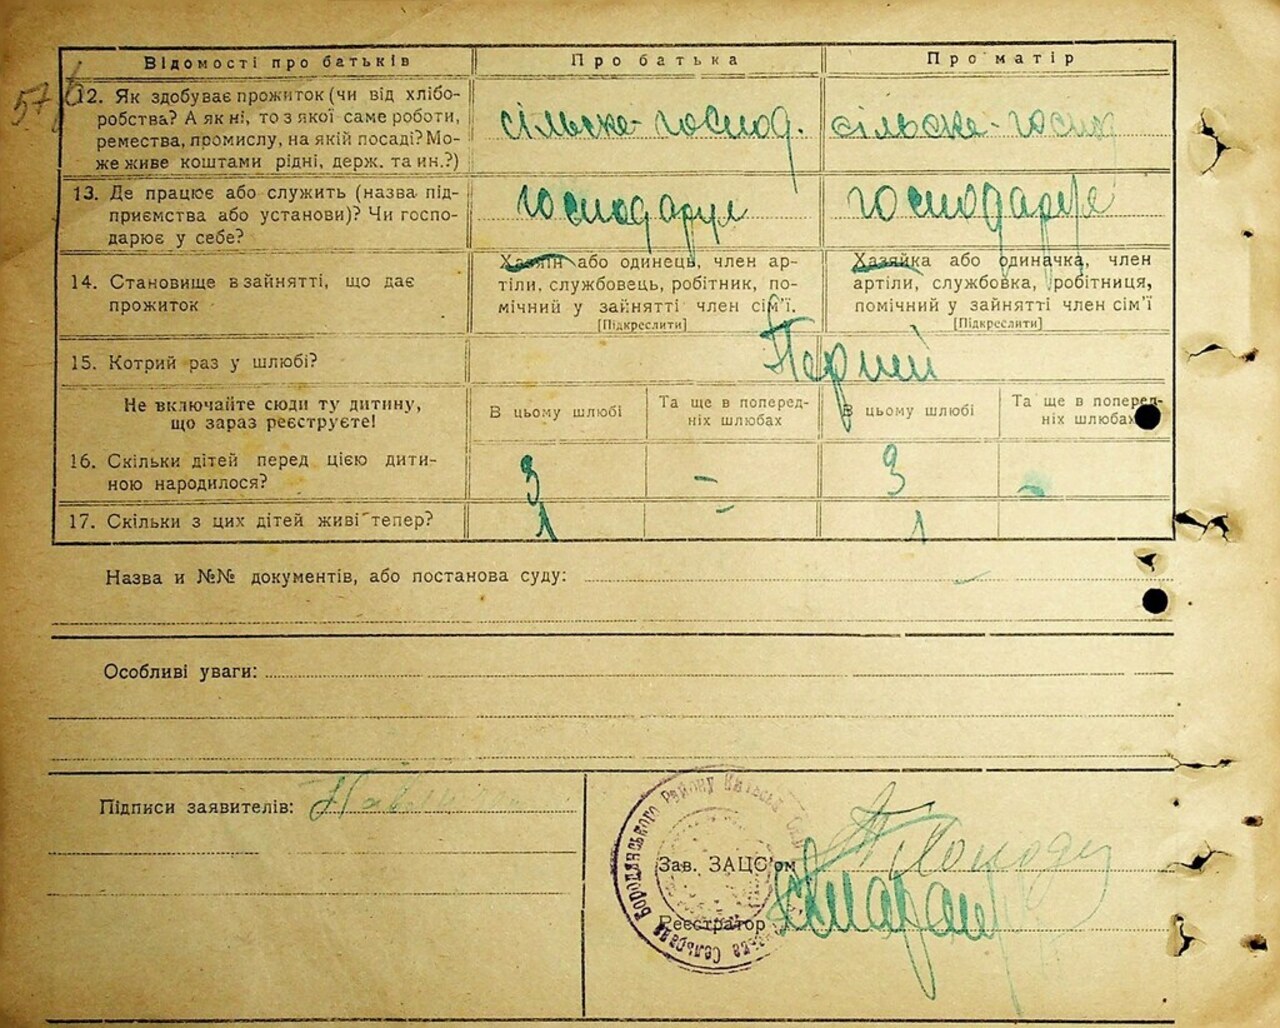 57б
Відомості про батьків
Про батька
Про матір
12. Як здобуває прожиток (чи від хлібо-
робства? А як ні, то з якої саме роботи,
ремества, промислу, на якій посаді? Мо-
же живе коштами рідні, держ. та ин.?)
сільське-господ.
сільське-господ
13. Де працює або служить (назва під-
приємства або установи)? Чи госпо-
дарює у себе?
господарує
господарює
14. Становище в зайнятті, що дає
прожиток
Хазяїн або одинець, член ар-
тіли, службовець, робітник, по-
мічний у зайнятті член сім'ї.
[Підкреслити]
Хазяйка або одиначка, член
артіли, службовка, робітниця,
помічний у зайнятті член сім'ї
[Підкреслити]
15. Котрий раз у шлюбі?
Перший
Не включайте сюди ту дитину,
що зараз реєструєте!
В цьому шлюбі
Та ще в поперед-
ніх шлюбах
В цьому шлюбі
Та ще в поперед-
ніх шлюбах
16. Скільки дітей перед цією дити-
ною народилося?
3
-
3
-
17. Скільки з цих дітей живі тепер?
1
-
1
Назва и №№ документів, або постанова суду:
Особливі уваги:
Підписи заявителів:
Зав. ЗАЦС'ом
Реєстратор
Сельрада Бородянського Району